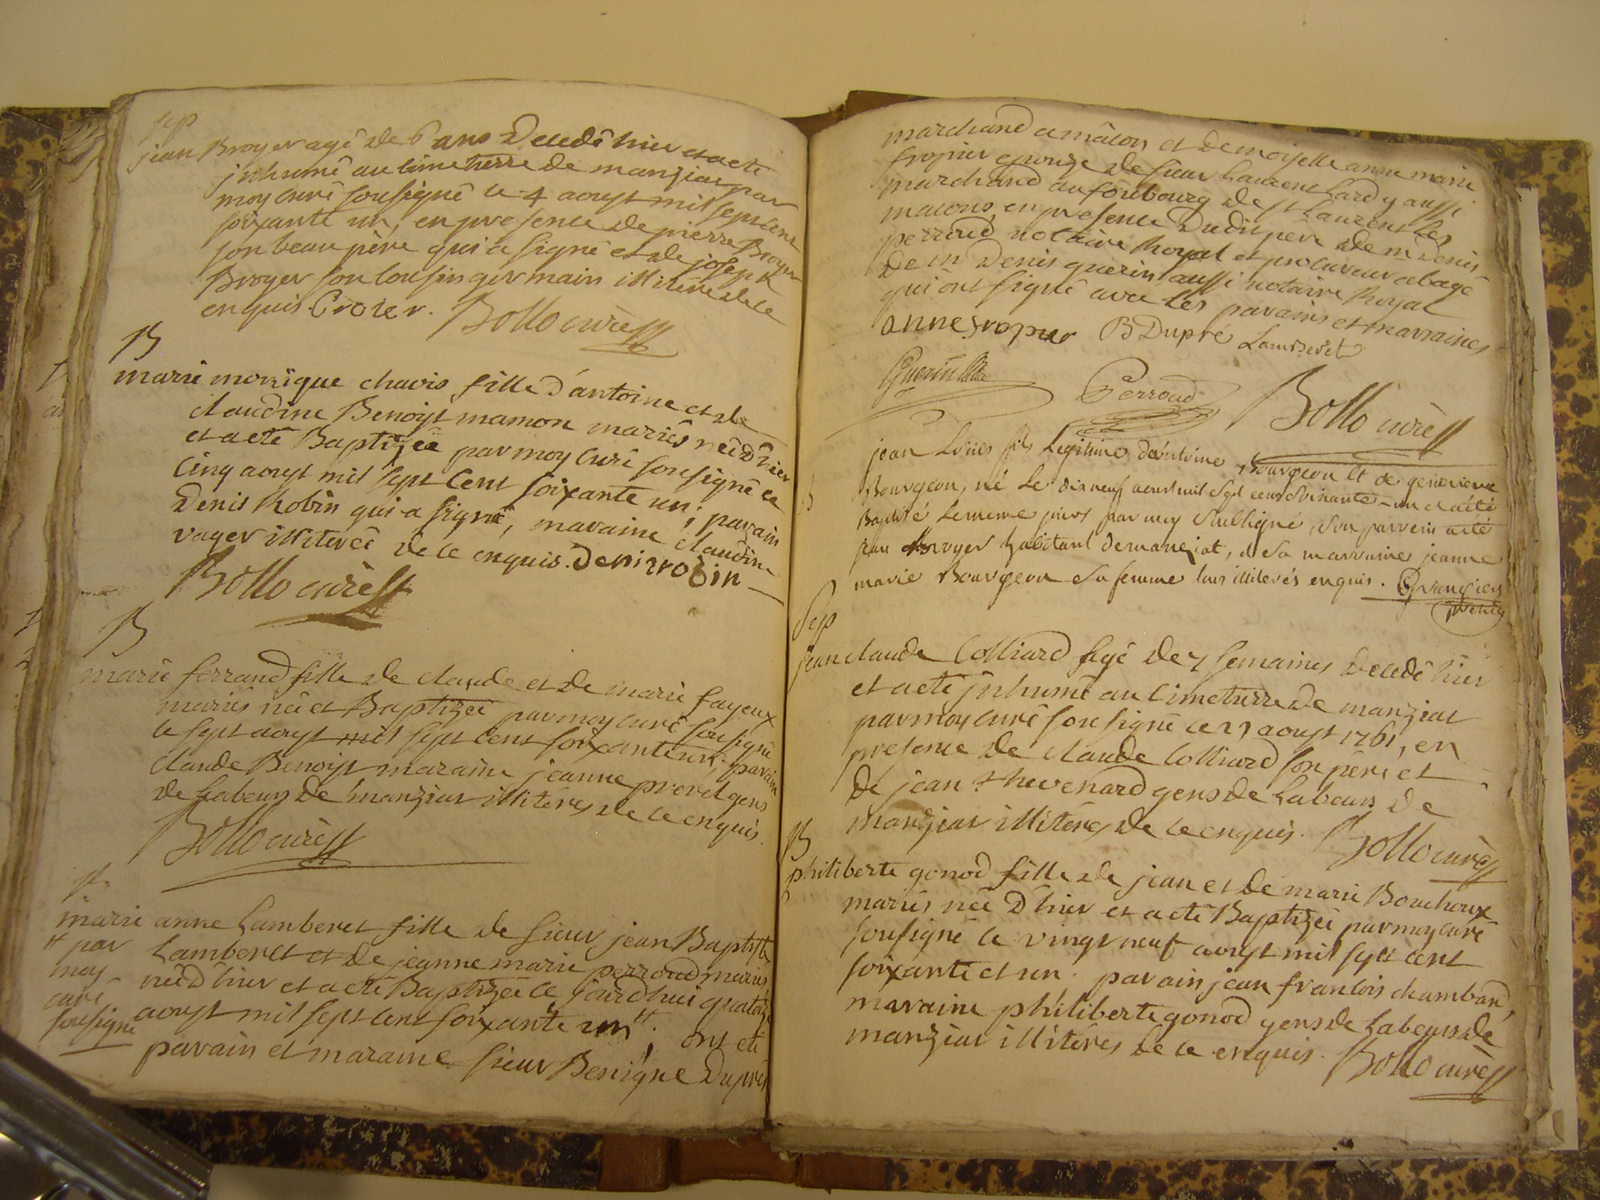 Sep
jean Broyer agé de 6 ans Decedé hier et a eté
jnhumé au cimetierre de manziat par
moy curé sousigné le 4 aoust mil sept cent
soixante un, en presence de pierre Broyer
son beau père qui a signé et de joseph
Broyer son cousin germain illiteré de ce
enquis. Croier. Bollo curé
B
marie monique chavis fille d'antoine et de
claudine Benoist mamon mariés née d'hier
et a eté Baptizée par moy curé sousigné ce
cinq aoust mil sept cent soixante un; parain
Denis Robin qui a signé, maraine claudine
vager illiterée de ce enquis. Deni robin
Bollo curé
B
marie ferrand fille de claude et de marie fayeux
mariés née et Baptizée par moy curé sousigné
le sept aoust mil sept cent soixante un. parain
claude Benoist maraine jeanne prevel gens
de Labeurs de manziat illiterés de ce enquis.
Bollo curé
B
marie anne Lamberet fille de sieur jean Baptiste
Lamberet et de jeanne marie perroud mariés
née d'hier et a eté Baptizée ce jourd'hui quatorze
aoust mil sept cent soixante un #. ont eté
parain et maraine sieur Benigne Dupré
# par
moy
curé
sousigné
marchand a mâcon et demoiselle anne marie
fropier epouze de sieur Laurent Lardy aussi
marchand au fonbourg de st Laurent Les
macons, en presence dudit pere de mr Denis
perroud notaire Royal et procureur a bagé
de mr Denis guerin aussi notaire Royal
qui ont signé avec Les parains et marraines
anne fropier B Dupré Lamberet
Guerin Perroud Bollo curé
B
jean Louis fils Legitime d'antoine Bourgeon et de genevieve
Bourgeon, né Le dixneuf aoust mil sept cent soixante-un et a eté
Baptisé Le meme jour par moy soussigné, son parrein a eté
jean Broyer habitant de manziat, et sa marraine jeanne
marie Bourgeon sa femme tous illiterés enquis.
Sep
jean claude Colliard agé de 7 semaines Decedé hier
et a eté jnhumé au cimetierre de manziat
par moy curé sousigné ce 27 aoust 1761, en
presence de claude Colliard son père et
de jean thevenard gens de Labeurs de
manziat illiterés de ce enquis. Bollo curé
B
philiberte gonod fille de jean et de marie Bouchoux
mariés née d'hier et a eté Baptizée par moy curé
sousigné le vingt neuf aoust mil sept cent
soixante et un. parain jean francois chamband,
maraine philiberte gonod gens de Labeurs de
manziat illiterés de ce enquis. Bollo curé